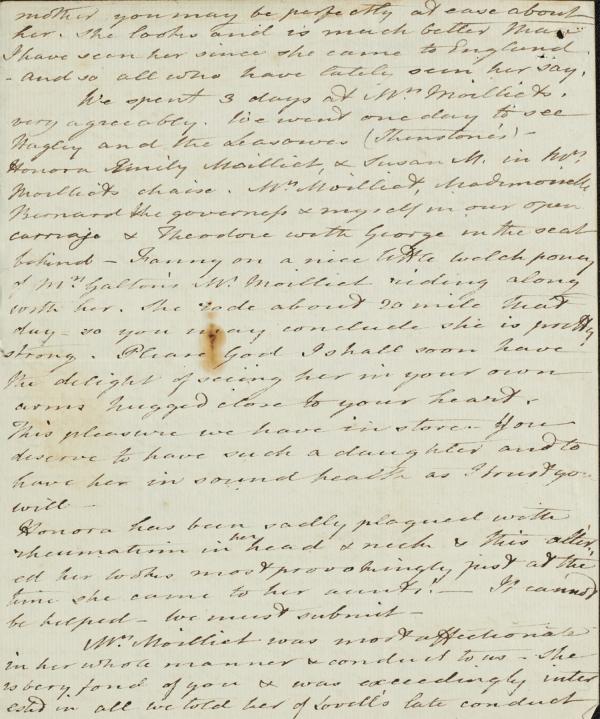 mother you may be perfectly at ease about
her. She looks and is much better than
I have seen her since she came to England
- and so all who have lately seen her say.
We spent 3 days at Mrs Moilliets.
very agreeably. We went one day to see
Hagley and the Leasowes (Shenstone's) -
Honora Emily Moilliet, & Susan M. in Mrs
Moilliets chaise. Mrs Moilliet, Mademoiselle
Bernard the governess & myself in our open
carriage & Theodore with George in the seat
behind - Fanny on a nice little welch poney
of Mrs Galton's Mr Moilliet riding along
with her. She rode about 20 mile that
day - so you may conclude she is pretty
strong. Please God I shall soon have
the delight of seeing her in your own
arms hugged close to your heart.
This pleasure we have in store. You
deserve to have such a daughter and to
have her in sound health as I trust you
will -
Honora has been sadly plagued with
rheumatism in her head & neck & this alter
ed her looks most provokingly just at the
time she came to her aunts! - It cannot
be helped - We must submit -
Mrs Moilliet was most affectionate
in her whole manner & conduct to us - She
is very fond of you & was exceedingly inter
ested in all we told her of Lovell's late conduct